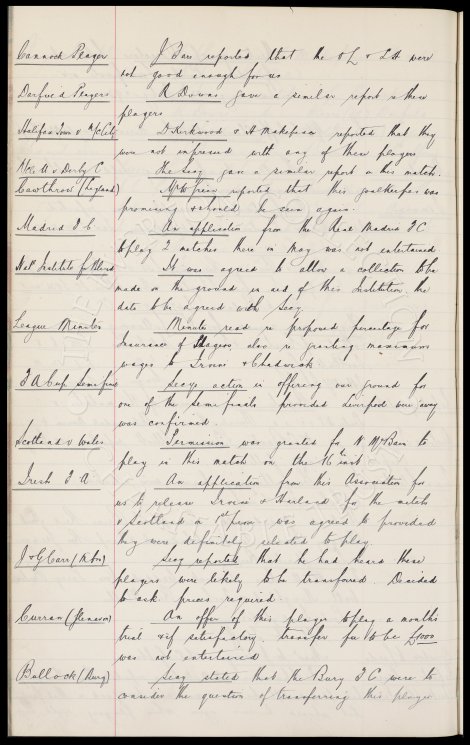 Cannock Player
J Barr reported that the OL & LH were
not good enough for us
Darfield Players
R Downs gave a similar report on these
players
Halifax Town & M/c City
D Kirkwood & H Makepeace reported that they
were not impressed with any of these players
M/c U v Derby C
The Secy gave a similar report on this match.
Cawthrow (England)
reported that this goalkeeper was
promising & should be seen again.
Madrid F C
An application from the Real Madrid F C
to play 2 matches there in May was not entertained
Natl Institute for Blind
It was agreed to allow a collection to be
made on the ground in aid of this Institution, the
date to be agreed with Secy
League Minutes
Minutes read re proposed percentage for
Insurance of Players also re granting maximum
wages to Irvine & Chadwick
F A Cup Semi finals
Secys action in offering our ground for
one of the semi finals provided Liverpool were away
was confirmed.
Scotland v Wales
Permission was granted for N McBain to
play in this match on the 16th inst
Irish F A
An application from this Association for
us to release Irvine & Harland for the match
v Scotland on 1st prox was agreed to provided
they were definitely selected to play.
J & G Carr
Secy reported that he had heard these
players were likely to be transferred. Decided
to ask prices required.
Curran
An offer of this player to play a months
trial & if satisfactory transfer fee to be £1000
was not entertained
Bullock (Bury)
Secy stated that the Bury F C were to
consider the question of transferring this player